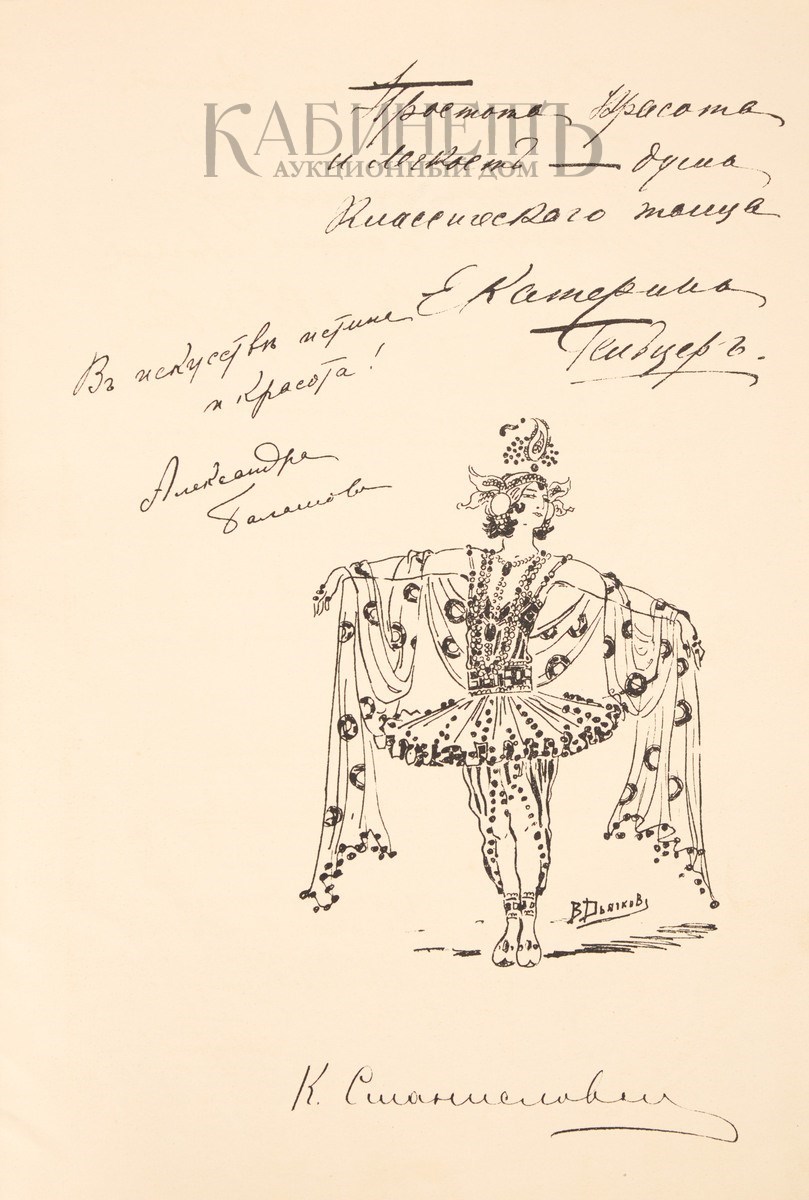 КАБИНЕТЪ
АУКЦИОННЫЙ ДОМ
Простота, Красота
и легкость — душа
Классического танца
Екатерина
Гельцеръ.
Въ искусствѣ истина
и красота!
Александра
Балашова
В Дьячковъ
К. Станиславский